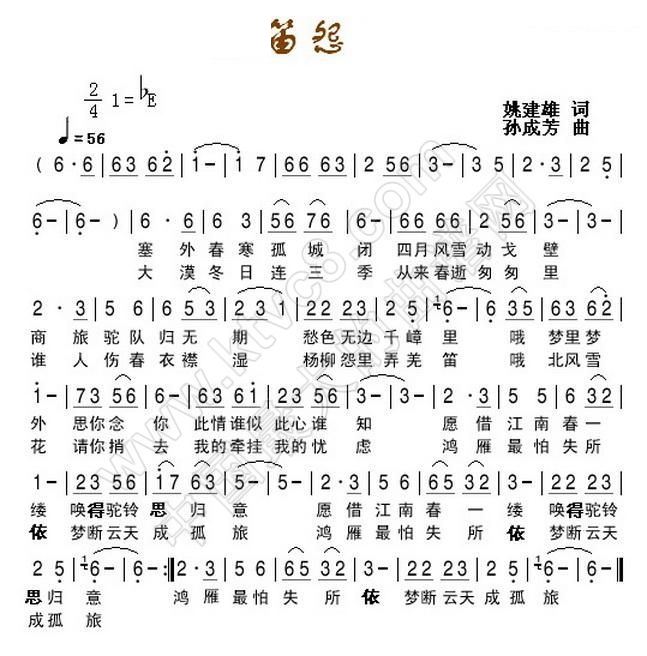 笛怨
2/4 1=♭E
姚建雄 词
♩=56
孙成芳 曲
( 6·6 | 63 62 | 1- | 1 7 | 66 63 | 2 56 | 3- | 3- | 2·3 | 2 5 |
6- | 6- ) | 6·6 | 6 3 | 56 76 | 6- | 66 66 | 2 56 | 3- | 3- |
塞 外 春 寒 孤 城 闭 四月 风雪 动 戈 壁
大 漠 冬 日 连 三 季 从来 春逝 匆 匆 里
2·3 | 5 6 | 6 53 | 2 3 1 | 22 23 | 25 23 | 6- | 6 35 | 63 62 |
商 旅 驼 队 归 无 期 愁色 无边 千 嶂 里 哦 梦里 梦
谁 人 伤 春 衣 襟 湿 杨柳 怨里 弄 羌 笛 哦 北风 雪
1- | 73 56 | 6- | 17 63 | 23 56 | 3- | 2·3 | 5 6 | 6 32 |
外 思你 念 你 此情 谁似 此心 谁 知 愿 借 江 南 春 一
花 请你 捎 去 我的 牵挂 我的 忧 虑 鸿 雁 最 怕 失 所
1- | 23 56 | 17 63 | 5- | 2·3 | 5 6 | 65 32 | 3- | 22 23 |
缕 唤得 驼铃 思 归 意 愿 借 江 南 春 一 缕 唤得 驼铃
依 梦断 云天 成 孤 旅 鸿 雁 最 怕 失 所 依 梦断 云天
2 5 | 6- | 6- :| 2·3 | 5 6 | 65 32 | 3- | 22 23 | 2 5 | 6- | 6- ‖
思 归 意 鸿 雁 最 怕 失 所 依 梦断 云天 成 孤 旅
成 孤 旅
www.ktvc8.com